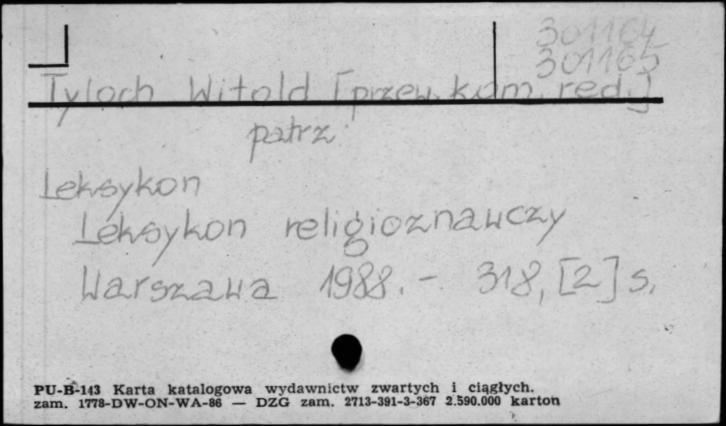 301164
301165
Tyloch Witold [przew. kom. red.]
patrz
Leksykon
Leksykon religioznawczy
Warszawa 1988. - 318, [2] s.
PU-B-143 Karta katalogowa wydawnictw zwartych i ciągłych.
zam. 1778-DW-ON-WA-86 — DZG zam. 2713-391-3-367 2.590.000 karton